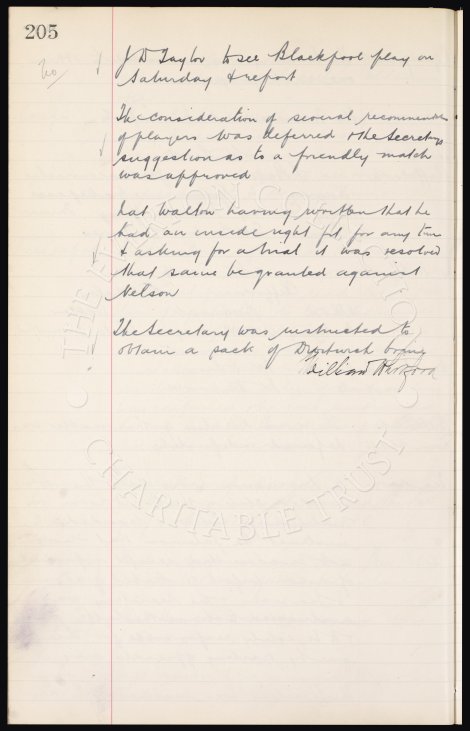 205
No
J D Taylor to see Blackpool play on
Saturday & report
The consideration of several recommendations
of players was deferred & the Secretarys
suggestion as to a friendly match
was approved
Nat Walton having written that he
had an inside right fit for any team
& asking for a trial it was resolved
that same be granted against
Nelson
The Secretary was instructed to
obtain a pack of Droitwich brine
William
THE FENTON
CHARITABLE TRUST